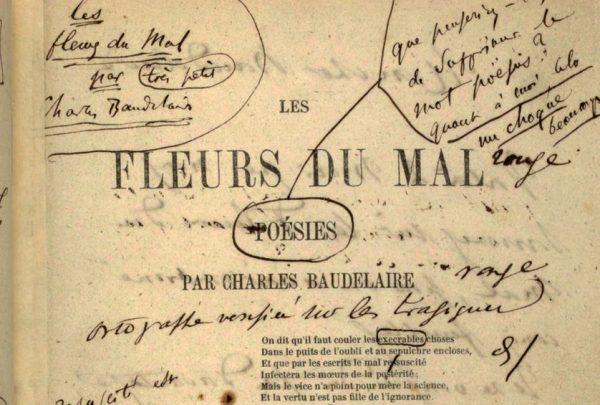 les
fleurs du Mal
par très petit
Charles Baudelaire
que pensez-
de supprimer le
mot poésies?
quant à moi cela
me choque
beaucoup
LES
FLEURS DU MAL
rouge
POÉSIES
PAR CHARLES BAUDELAIRE
rouge
sur les tragiques
On dit qu'il faut couler les execrables choses
Dans le puits de l'oubli et au sepulchre encloses,
Et que par les escrits le mal ressuscité
Infectera les mœurs de la postérité;
Mais le vice n'a point pour mère la science,
Et la vertu n'est pas fille de l'ignorance.